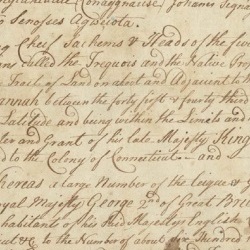 Johanes Segeh
to Senosies Agwiiota.
Chief Sachems & Heads of the five
ans called the Iroquois and the Native Pro
Tract of Land on about and Adjacent to th
hannah between the forty first & fourty third
Latitude and being within the Limits and
ter and Grant of his late Majesty King
d to the Colony of Connecticut — and
hereas a large Number of the
yal Majesty George 2d of Great Bri
habitants of his said Majestys English
cut &c to the Number of about six Hundred